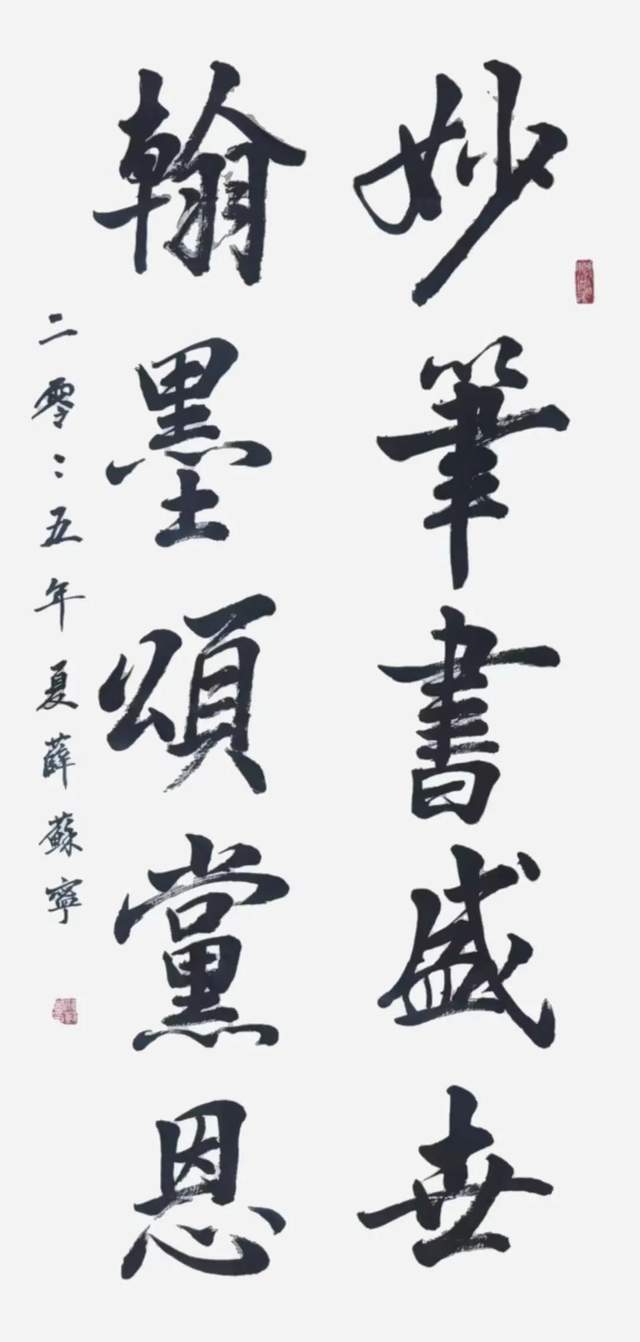 妙筆書盛世
翰墨頌黨恩
二零二五年夏薛蘇寧